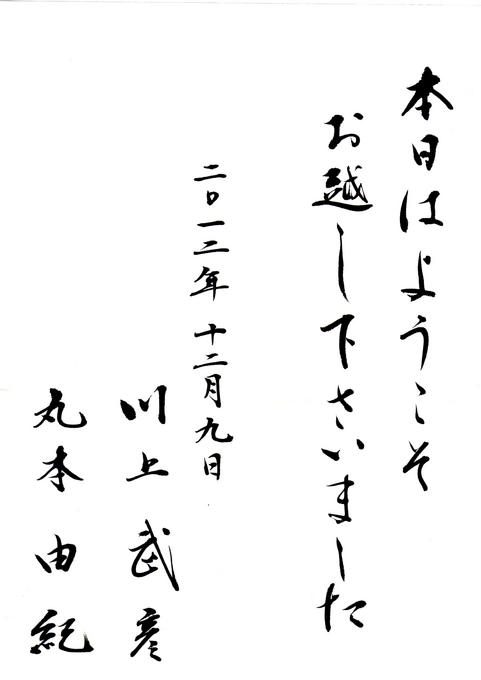 本日はようこそ
お越し下さいました
二〇一二年 十二月九日
川上 武彦
丸本 由紀